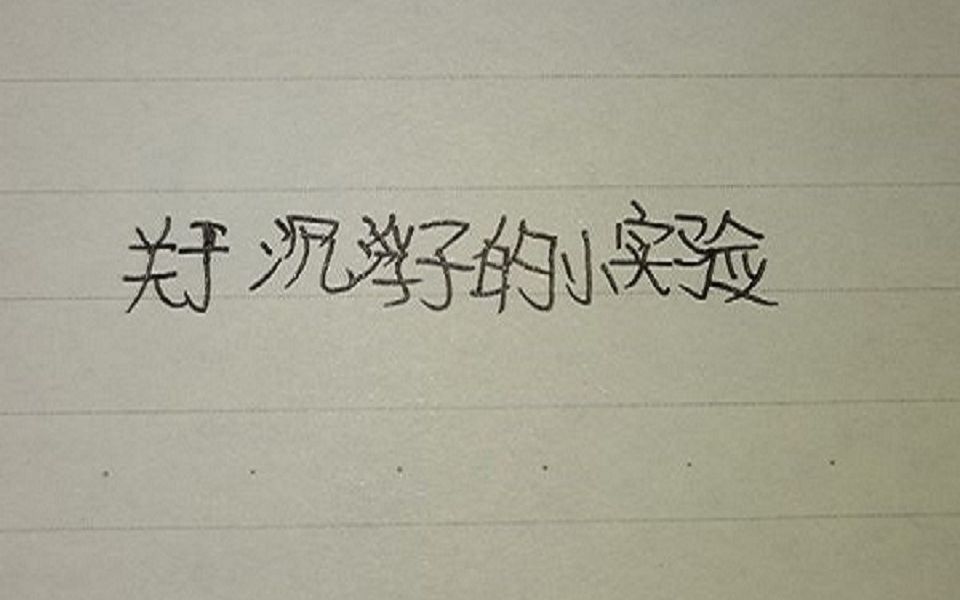 关于沉浮子的小实验